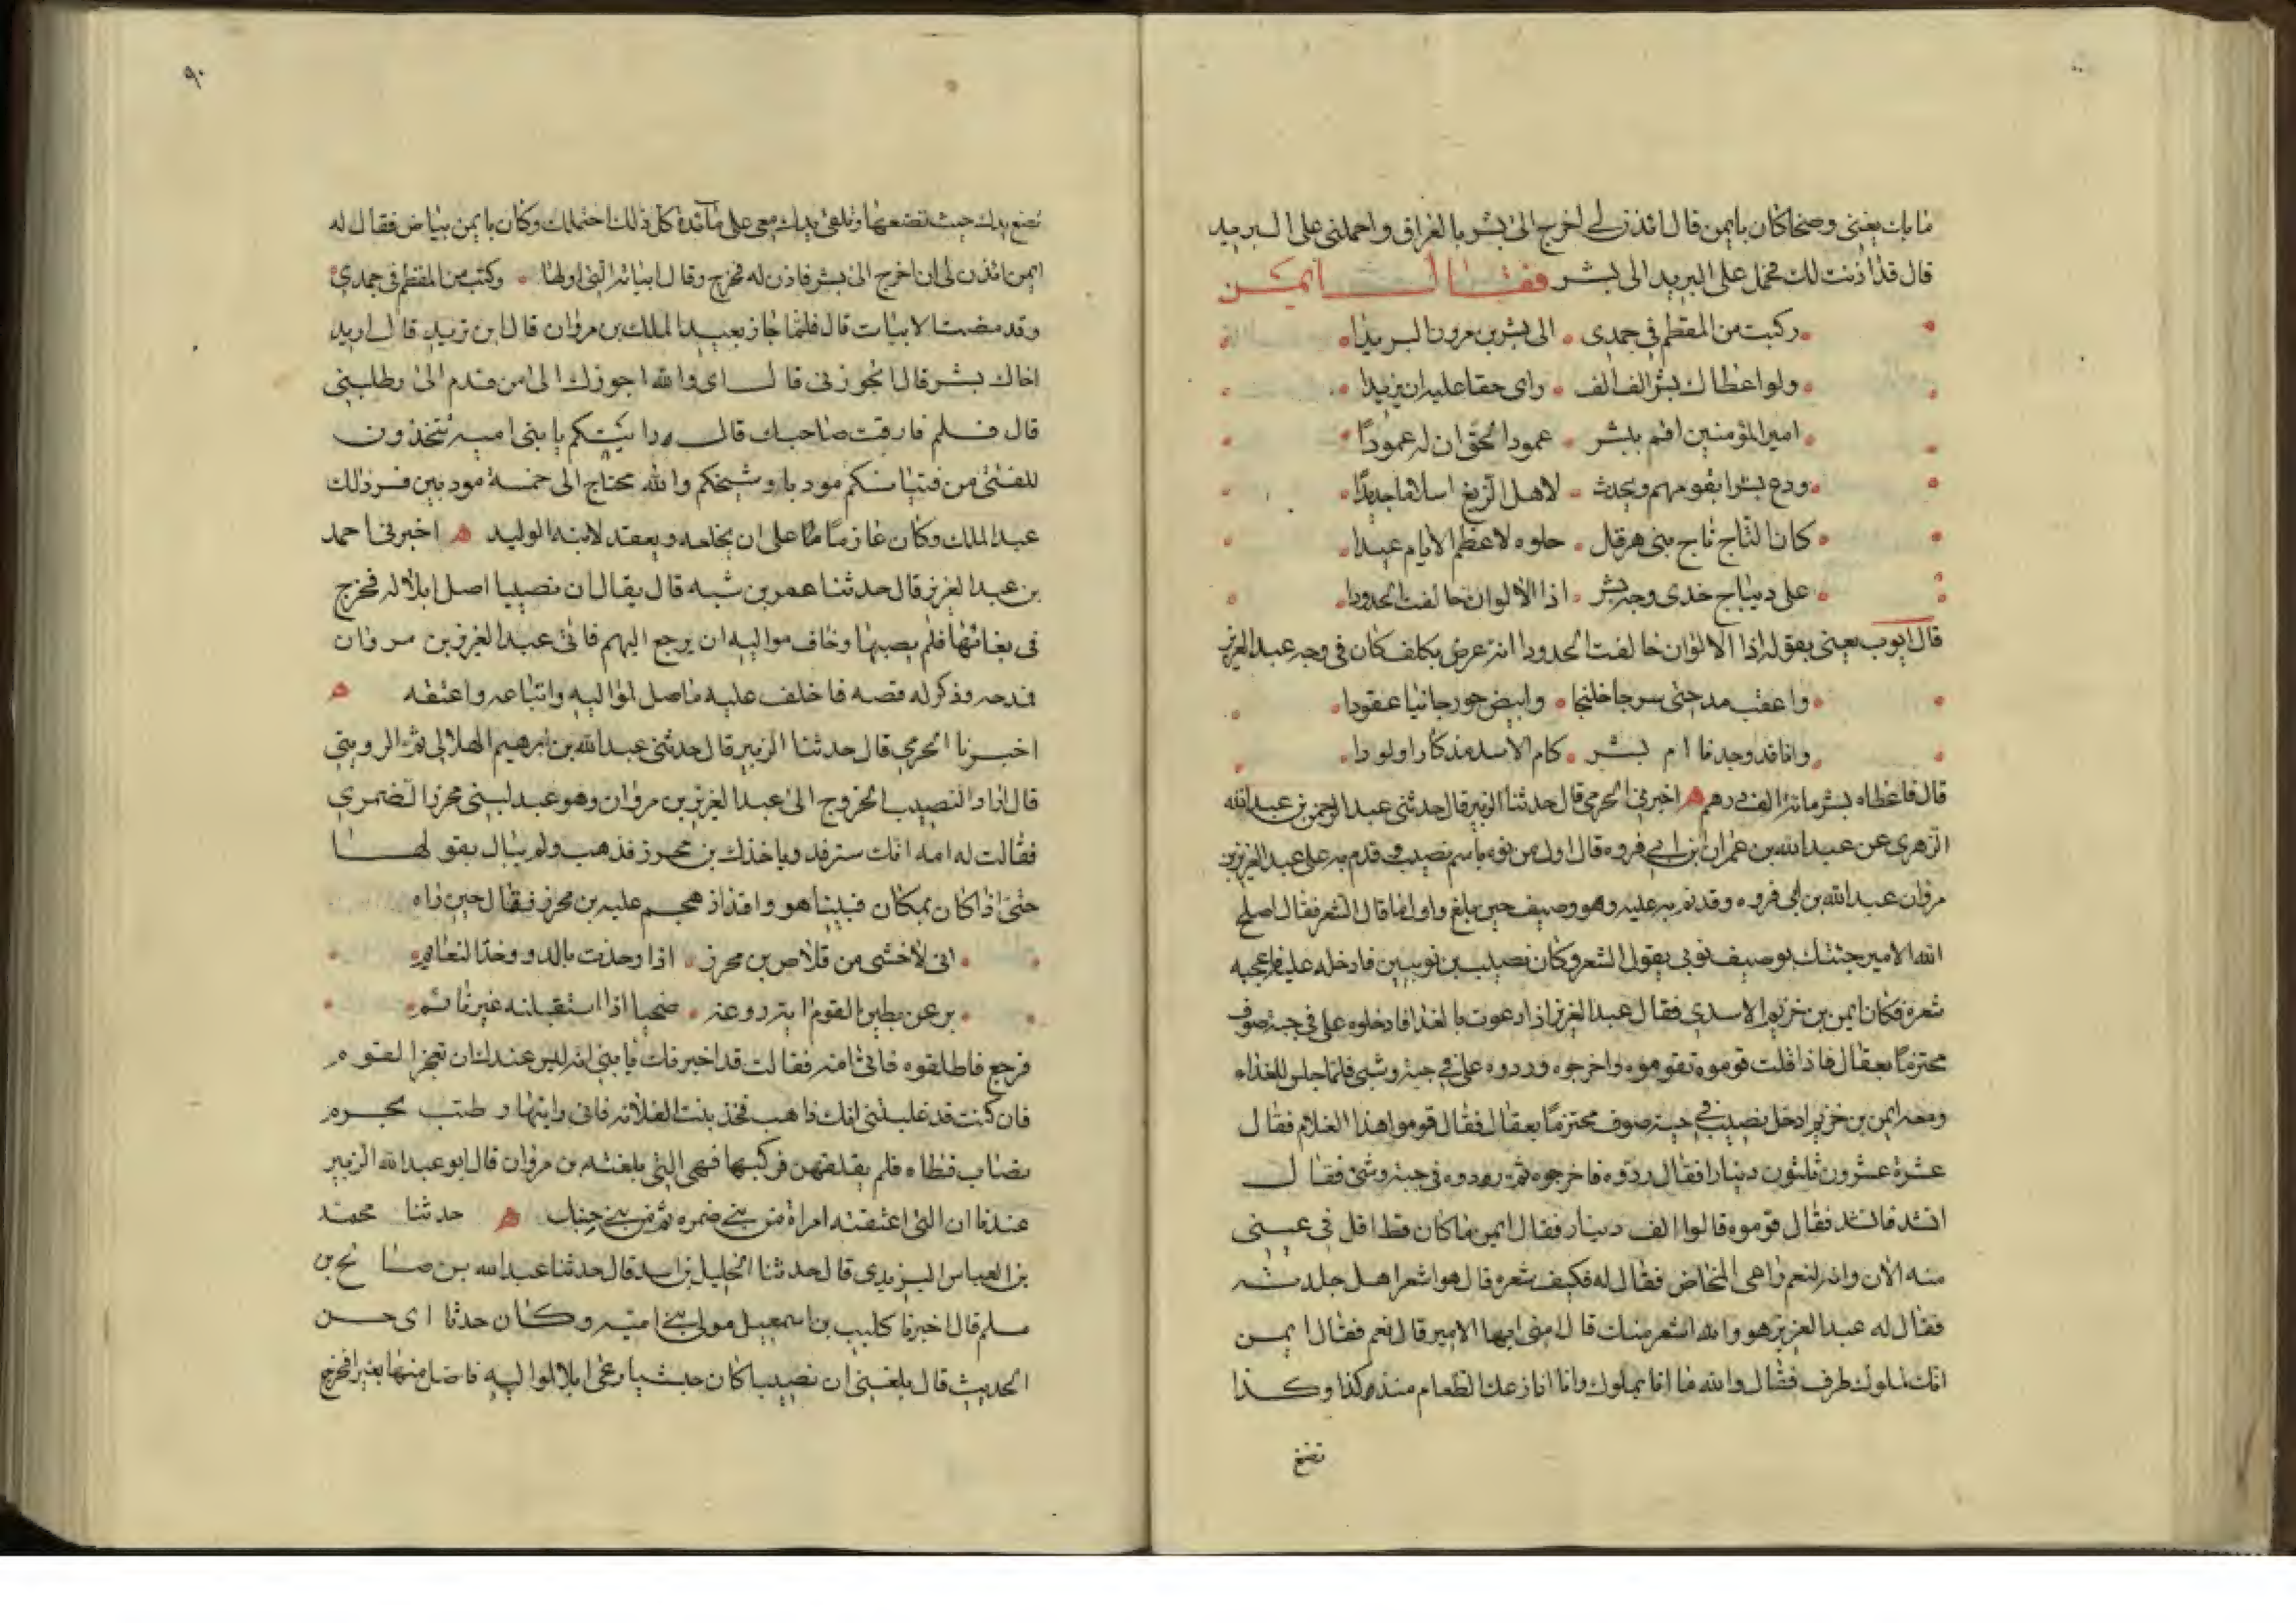 مابك يعني وضحا كان بايمن قال ائذن لي اخرج الى بشر بالعراق واحملني على البريد
قال قد اذنت لك فحمل على البريد الى بشر فقال ايمن
ركبت من المقطم في جمدى الى بشر بن مرون البريدا
ولو اعطاك بشر الف الف راى حقا عليه ان يزيدا
امير المؤمنين اقم ببشر عمود الحق ان له عمودا
ودع بشرا يقومهم ويحدث لاهل الزيغ اسلاما جديدا
كان التاج تاج بني هرقل جلوه لاعظم الايام عيدا
على ديباج خدى وجه بشر اذا الالوان خالفت الخدودا
قال ايوب يعني بقوله اذا الالوان خالفت الخدودا انه عرض بكلف كان في وجه عبد العزيز
واعقب مدحتي سرجا خلنجا وابيض جورجانيا عقودا
وانا قد وجدنا ام بشر كام الاسد مذكارا ولودا
قال فاعطاه بشر مائة الف درهم اخبرني الحرمي قال حدثنا الزبير قال حدثني عبد الرحمن بن عبد الله
الزهري عن عبد الله بن عمران بن ابي فروه قال اول من نوه باسم نصيب وقدم به على عبد العزيز بن
مروان عبد الله بن ابي فروه وقدم به عليه وهو وصيف حين بلغ واول ما قال الشعر فقال اصلح
الله الامير جئتك بوصيف نوبي يقول الشعر وكان نصيب بن نوبيين فادخله عليه فاعجبه
شعره فكان ايمن بن خزيم الاسدي فقال عبد العزيز اذا دعوت بالغدا فادخلوه على في جبة صوف
محتزما بعقال فاذا قلت قوموه تقوموه واخرجوه وردوه علي في جبة وشي فلما جلس للغداء
ومعه ايمن بن خزيم ادخل نصيب في جبة صوف محتزما بعقال فقال قوموا هذا الغلام فقال
عشرة عشرون ثلثون دينارا فقال ردوه فاخرجوه ثم ردوه في جبة وشي فقال
انشد فانشد فقال قوموه قالوا الف دينار فقال ايمن ما كان قط اقل في عيني
منه الان وانه لنعم راعى المخاض فقال له فكيف شعره قال هو اشعر اهل جلدته
فقال له عبد العزيز هو والله اشعر منك قال امني ايها الامير قال نعم فقال ايمن
انك لملول طرف فقال والله ما انا بملول وانا انازعك الطعام منذ كذا وكذا
تضع
تضع يدك حيث تضعها وتلقى يدك معي على مائدة كل ذلك احتملك وكان بايمن بياض فقال له
ايمن ائذن لي ان اخرج الى بشر فاذن له فخرج وقال ابياته التي اولها وكتب من المقطم في جمدي
وقد مضت الابيات قال فلما جاز بعبد الملك بن مروان قال اين تريد قال اريد
اخاك بشر قال اتجوزني قال اى والله اجوزك الى من قدم الى وطلبني
قال فلم فارقت صاحبك قال رايتكم يا بني اميه تتخذون
للفتى من فتيانكم مودبا وشيخكم والله يحتاج الى خمسة مودبين فسر ذلك
عبد الملك وكان عازما على ان يخلعه ويعقد لابنه الوليد اخبرني احمد
بن عبد العزيز قال حدثنا عمر بن شبه قال يقال ان نصيبا اصل ابلا له فخرج
في بغائها فلم يصبها وخاف مواليه ان يرجع اليهم فاتى عبد العزيز بن مروان
فمدحه وذكر له قصه فاخلف عليه ماصل لمواليه وابتاعه واعتقه
اخبرنا الحرمي قال حدثنا الزبير قال حدثني عبد الله بن ابرهيم الهلالي ثم الرويني
قال اراد النصيب الخروج الى عبد العزيز بن مروان وهو عبد لبني محرز الضمري
فقالت له امه انك سترقد وياخذك بن محرز فذهب ولم يبال بقولها
حتى اذا كان بمكان فبينا هو واقد اذ هجم عليه بن محرز فقال حين راه
انى لاخشى من قلاص بن محرز اذا وخذت بالدو وخد النعايم
يرعن بطين القوم ايتردوعه ضحيا اذا استقبلنه غير نائم
فرجع فاطلقوه فاتى امه فقالت قد اخبرتك يا بني انه ليس عندك ان تعجز القوم
فان كنت قد غلبتني انك ذاهب فخذ بنت الفلانه فاني رايتها وطئت محرم
بضاب قطاه فلم يفلقهن فركبها فهى التي بلغته بن مروان قال ابو عبد الله الزبير
عندنا ان التي اعتقته امراة من بني ضمره ثم من بني حنبل حدثنا محمد
بن العباس اليزيدى قال حدثنا الخليل بن اسد قال حدثنا عبد الله بن صالح بن
مسلم قال اخبرنا كليب بن اسمعيل مولى بني اميه وكان حدثا اى حسن
الحديث قال بلغني ان نصيبا كان حبشيا رعى ابلا لمواليه فاضل منها بعيرا فخرج